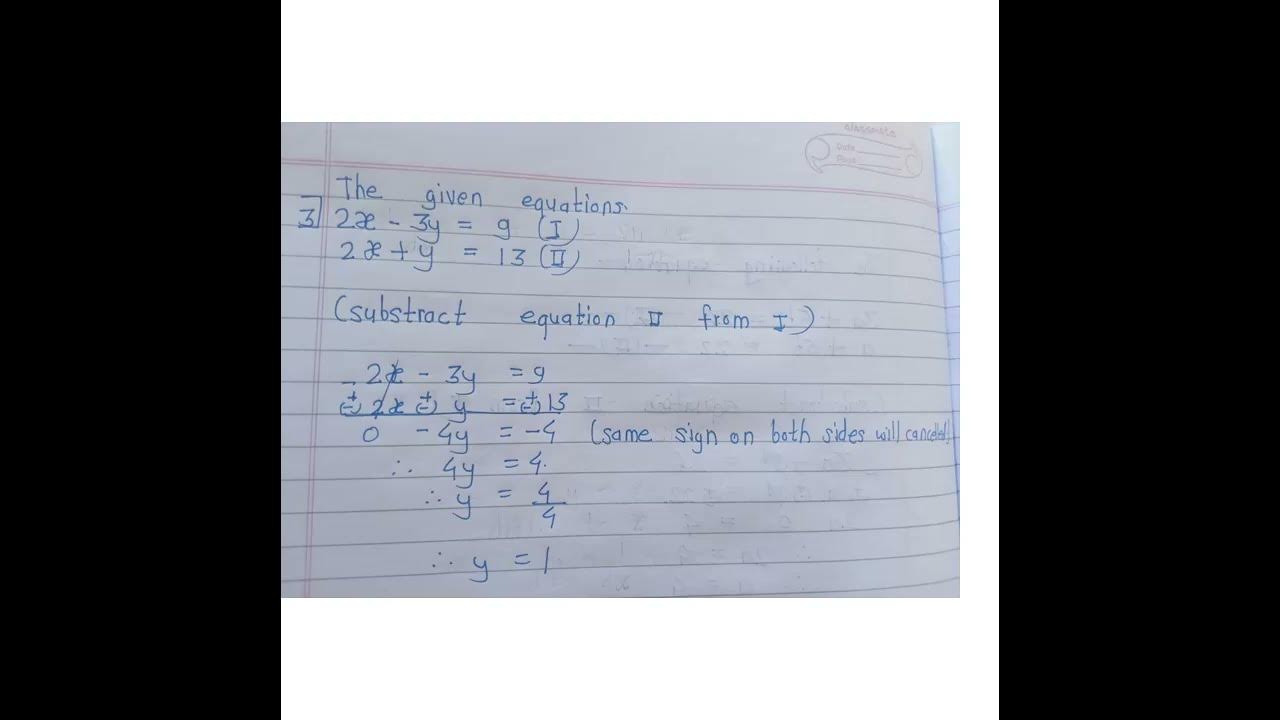 classmate
Date
Page
The given equations.
3] 2x - 3y = 9 (I)
2x + y = 13 (II)
(substract equation II from I)
- 2x - 3y = 9
+ (-) 2x + (-) y = + (-) 13
0 - 4y = -4 (same sign on both sides will cancelled)
∴ 4y = 4.
∴ y = 4/4
∴ y = 1